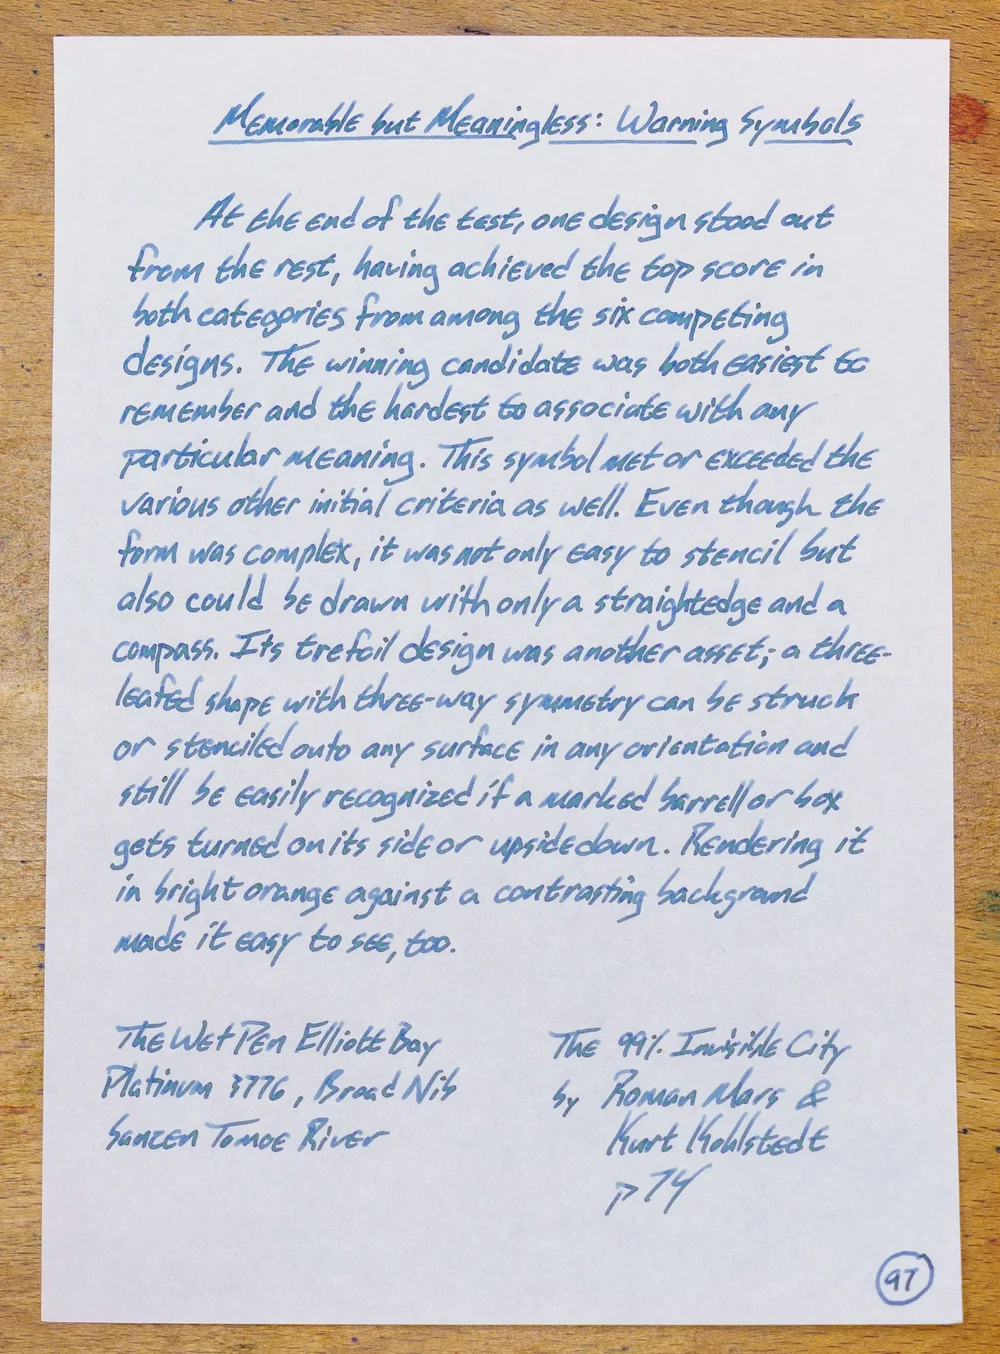 Memorable but Meaningless: Warning Symbols
At the end of the test, one design stood out
from the rest, having achieved the top score in
both categories from among the six competing
designs. The winning candidate was both easiest to
remember and the hardest to associate with any
particular meaning. This symbol met or exceeded the
various other initial criteria as well. Even though the
form was complex, it was not only easy to stencil but
also could be drawn with only a straightedge and a
compass. Its trefoil design was another asset; a three-
leafed shape with three-way symmetry can be struck
or stenciled onto any surface in any orientation and
still be easily recognized if a marked barrell or box
gets turned on its side or upside down. Rendering it
in bright orange against a contrasting background
made it easy to see, too.
The Wet Pen Elliott Bay
Platinum 3776, Broad Nib
Sanzen Tomoe River
The 99% Invisible City
by Roman Mars &
Kurt Kohlstedt
p 74
97